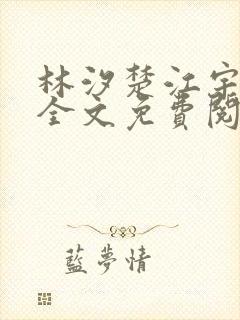 林汐楚江宇
全文免費閱
藍夢情